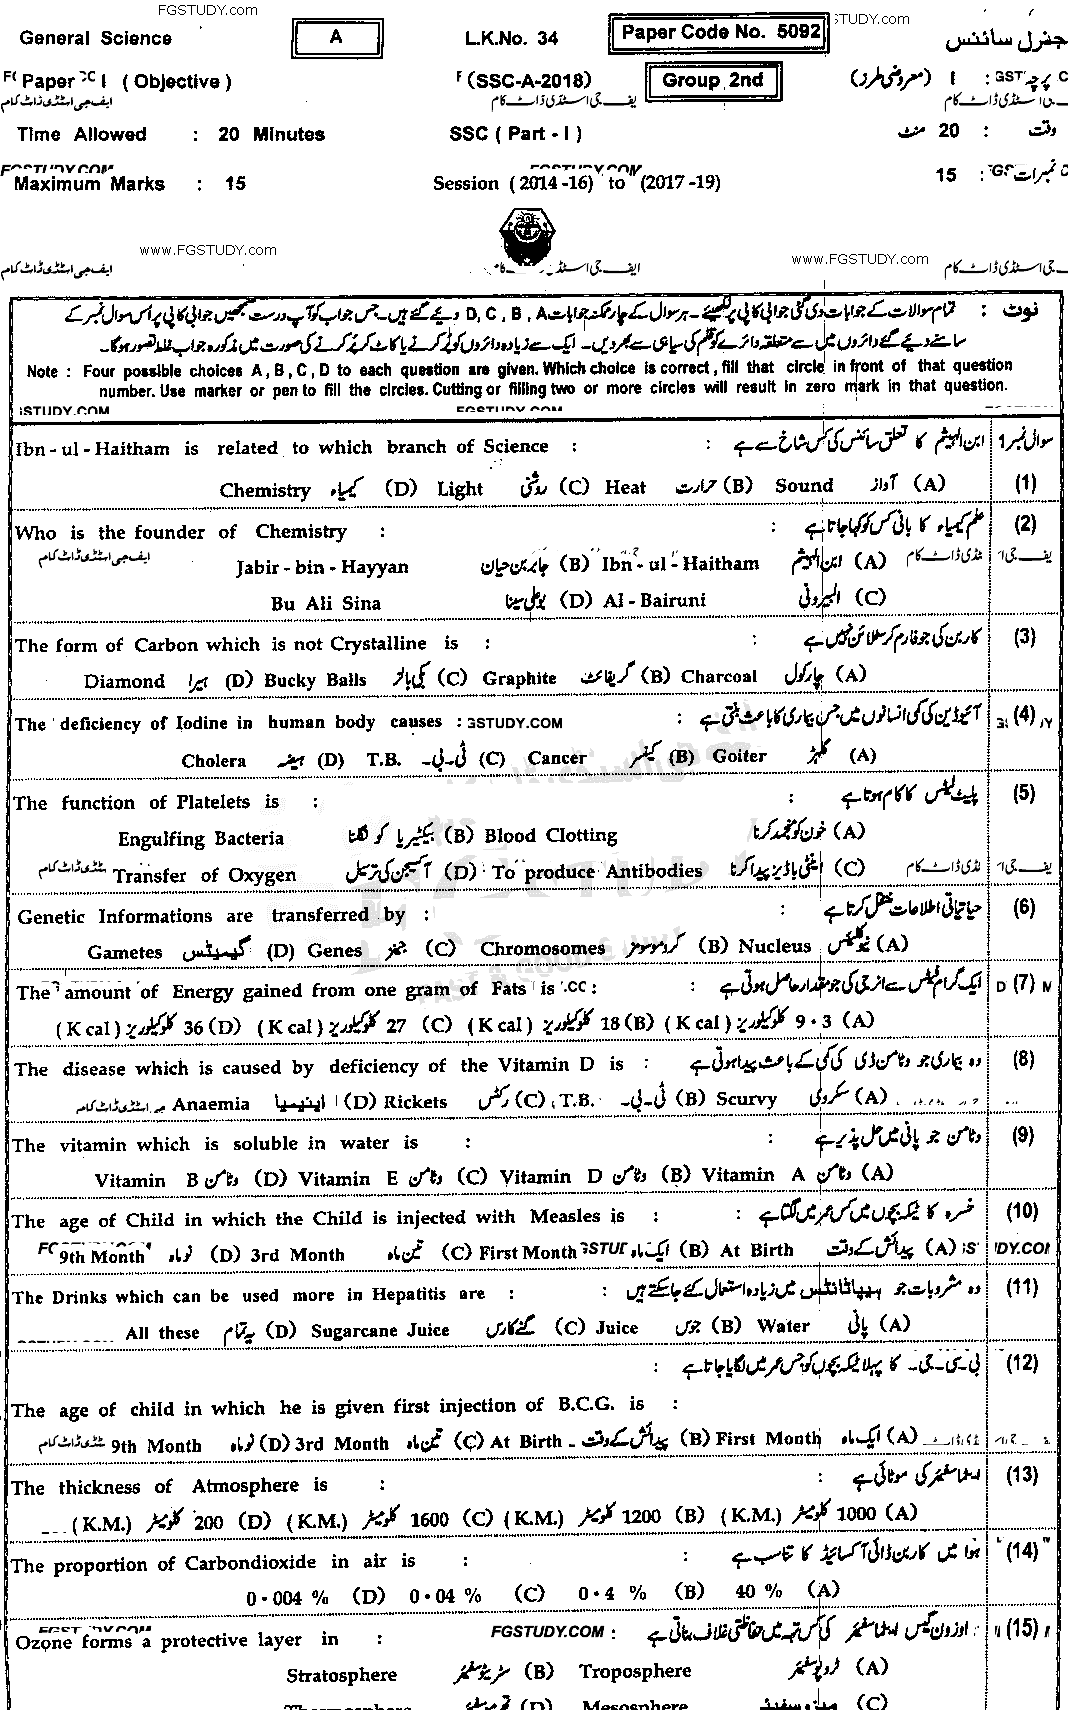 FGSTUDY.COM
STUDY.COM
General Science
A
L.K.No. 34
Paper Code No. 5092
جنرل سائنس
Paper I ( Objective )
(SSC-A-2018)
Group 2nd
پرچہ : I (معروضی طرز)
ایف جی اسٹڈی ڈاٹ کام
Time Allowed : 20 Minutes
SSC ( Part - I )
وقت : 20 منٹ
FGSTUDY.COM
FGSTUDY.COM
Maximum Marks : 15
Session (2014-16) to (2017-19)
نمبرات : 15
www.FGSTUDY.com
www.FGSTUDY.com
ایف جی اسٹڈی ڈاٹ کام
نوٹ : تمام سوالات کے جوابات دی گئی جوابی کاپی پر لکھیئے ۔ ہر سوال کے چار ممکنہ جوابات D, C, B, A دیے گئے ہیں۔ جس جواب کو آپ درست سمجھیں جوابی کاپی پر اس سوال نمبر کے
سامنے دیے گئے دائروں میں سے متعلقہ دائرے کو قلم کی سیاہی سے بھر دیں۔ ایک سے زیادہ دائروں کو پُر کرنے یا کاٹ کر پُر کرنے کی صورت میں مذکورہ جواب غلط تصور ہوگا۔
Note : Four possible choices A, B, C, D to each question are given. Which choice is correct, fill that circle in front of that question
number. Use marker or pen to fill the circles. Cutting or filling two or more circles will result in zero mark in that question.
FGSTUDY.COM
Ibn - ul - Haitham is related to which branch of Science : ابن الہیثم کا تعلق سائنس کی کس شاخ سے ہے : سوال نمبر 1
Chemistry کیمیاء (D) Light روشنی (C) Heat حرارت (B) Sound آواز (A) (1)
Who is the founder of Chemistry : علم کیمیاء کا بانی کس کو کہا جاتا ہے : (2)
Jabir - bin - Hayyan جابر بن حیان (B) Ibn - ul - Haitham ابن الہیثم (A)
Bu Ali Sina بوعلی سینا (D) Al - Bairuni البیرونی (C)
The form of Carbon which is not Crystalline is : کاربن کی جو فارم کرسٹلائن نہیں ہے : (3)
Diamond ہیرا (D) Bucky Balls بکی بالز (C) Graphite گریفائٹ (B) Charcoal چارکول (A)
The deficiency of Iodine in human body causes : GSTUDY.COM آئیوڈین کی کمی انسانوں میں جس بیماری کا باعث بنتی ہے : (4)
Cholera ہیضہ (D) T.B. ٹی۔بی۔ (C) Cancer کینسر (B) Goiter گلہڑ (A)
The function of Platelets is : پلیٹ لیٹس کا کام ہوتا ہے : (5)
Engulfing Bacteria بیکٹیریا کو نگلنا (B) Blood Clotting خون کو منجمد کرنا (A)
Transfer of Oxygen آکسیجن کی ترسیل (D) To produce Antibodies اینٹی باڈیز پیدا کرنا (C)
Genetic Informations are transferred by : حیاتیاتی اطلاعات منتقل کرتا ہے : (6)
Gametes گیمیٹس (D) Genes جینز (C) Chromosomes کروموسومز (B) Nucleus نیوکلیئس (A)
The amount of Energy gained from one gram of Fats is : ایک گرام فیٹس سے انرجی کی جو مقدار حاصل ہوتی ہے : (7)
(K cal) کلوکیلوریز 36 (D) (K cal) کلوکیلوریز 27 (C) (K cal) کلوکیلوریز 18 (B) (K cal) کلوکیلوریز 9·3 (A)
The disease which is caused by deficiency of the Vitamin D is : وہ بیماری جو وٹامن ڈی کی کمی کے باعث پیدا ہوتی ہے : (8)
Anaemia اینیمیا (D) Rickets رکٹس (C) T.B. ٹی۔بی۔ (B) Scurvy سکروی (A)
The vitamin which is soluble in water is : وٹامن جو پانی میں حل پذیر ہے : (9)
Vitamin B وٹامن (D) Vitamin E وٹامن (C) Vitamin D وٹامن (B) Vitamin A وٹامن (A)
The age of Child in which the Child is injected with Measles is : خسرہ کا ٹیکہ بچوں میں کس عمر میں لگتا ہے : (10)
9th Month نو ماہ (D) 3rd Month تین ماہ (C) First Month ایک ماہ (B) At Birth پیدائش کے وقت (A)
The Drinks which can be used more in Hepatitis are : وہ مشروبات جو ہیپاٹائٹس میں زیادہ استعمال کئے جاسکتے ہیں : (11)
All these یہ تمام (D) Sugarcane Juice گنے کا رس (C) Juice جوس (B) Water پانی (A)
بی۔سی۔جی۔ کا پہلا ٹیکہ بچوں کو جس عمر میں لگایا جاتا ہے : (12)
The age of child in which he is given first injection of B.C.G. is :
9th Month نو ماہ (D) 3rd Month تین ماہ (C) At Birth پیدائش کے وقت (B) First Month ایک ماہ (A)
The thickness of Atmosphere is : ایٹماسفیئر کی موٹائی ہے : (13)
(K.M.) کلومیٹر 200 (D) (K.M.) کلومیٹر 1600 (C) (K.M.) کلومیٹر 1200 (B) (K.M.) کلومیٹر 1000 (A)
The proportion of Carbondioxide in air is : ہوا میں کاربن ڈائی آکسائیڈ کا تناسب ہے : (14)
0·004 % (D) 0·04 % (C) 0·4 % (B) 40 % (A)
Ozone forms a protective layer in : FGSTUDY.COM : اوزون گیس ایٹماسفیئر کی کس تہہ میں حفاظتی غلاف بناتی ہے (15)
Stratosphere سٹریٹوسفیئر (B) Troposphere ٹروپوسفیئر (A)
Thermosphere تھرموسفیئر (D) Mesosphere میزوسفیئر (C)